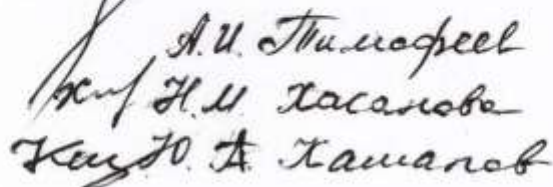 А.И. Тимофеев
Н.М. Хасанова
Ю.А. Камалов